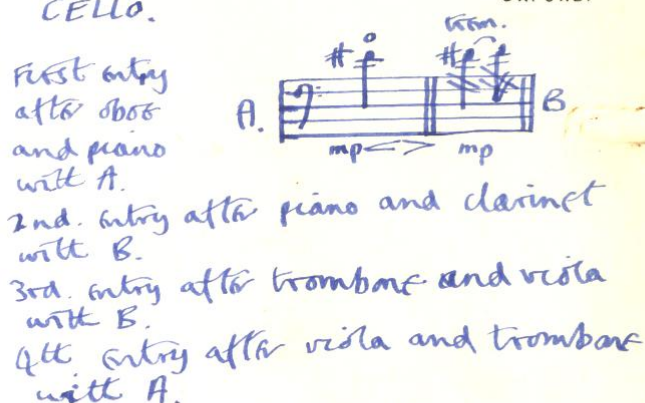 CELLO.
trem.
First entry
after oboe
and piano
with A.
A.
B
mp
mp
2nd. entry after piano and clarinet
with B.
3rd. entry after trombone and viola
with B.
4th entry after viola and trombone
with A.